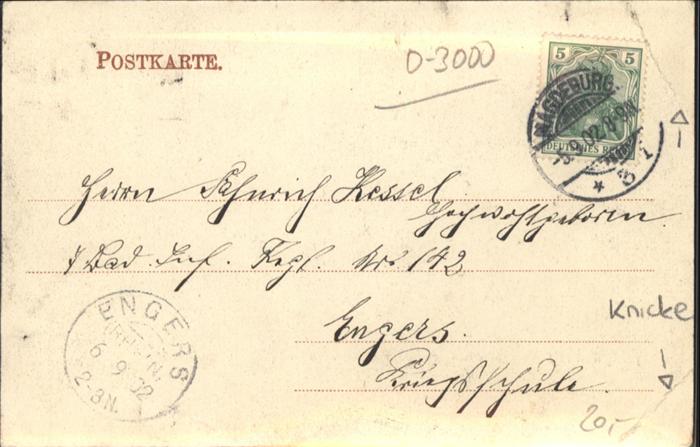 POSTKARTE.
D-3000
5 5
DEUTSCHES REICH
MAGDEBURG.
5.9.02.8-9N.
* 5 1
Herrn Fähnrich Kessel
Hochwohlgeboren.
7 Bad. Inf. Regt. Nr. 142
Engers.
Kriegsschule.
ENGERS
(RHEIN)
6 9 02
2-3N.
Knicke
20,-